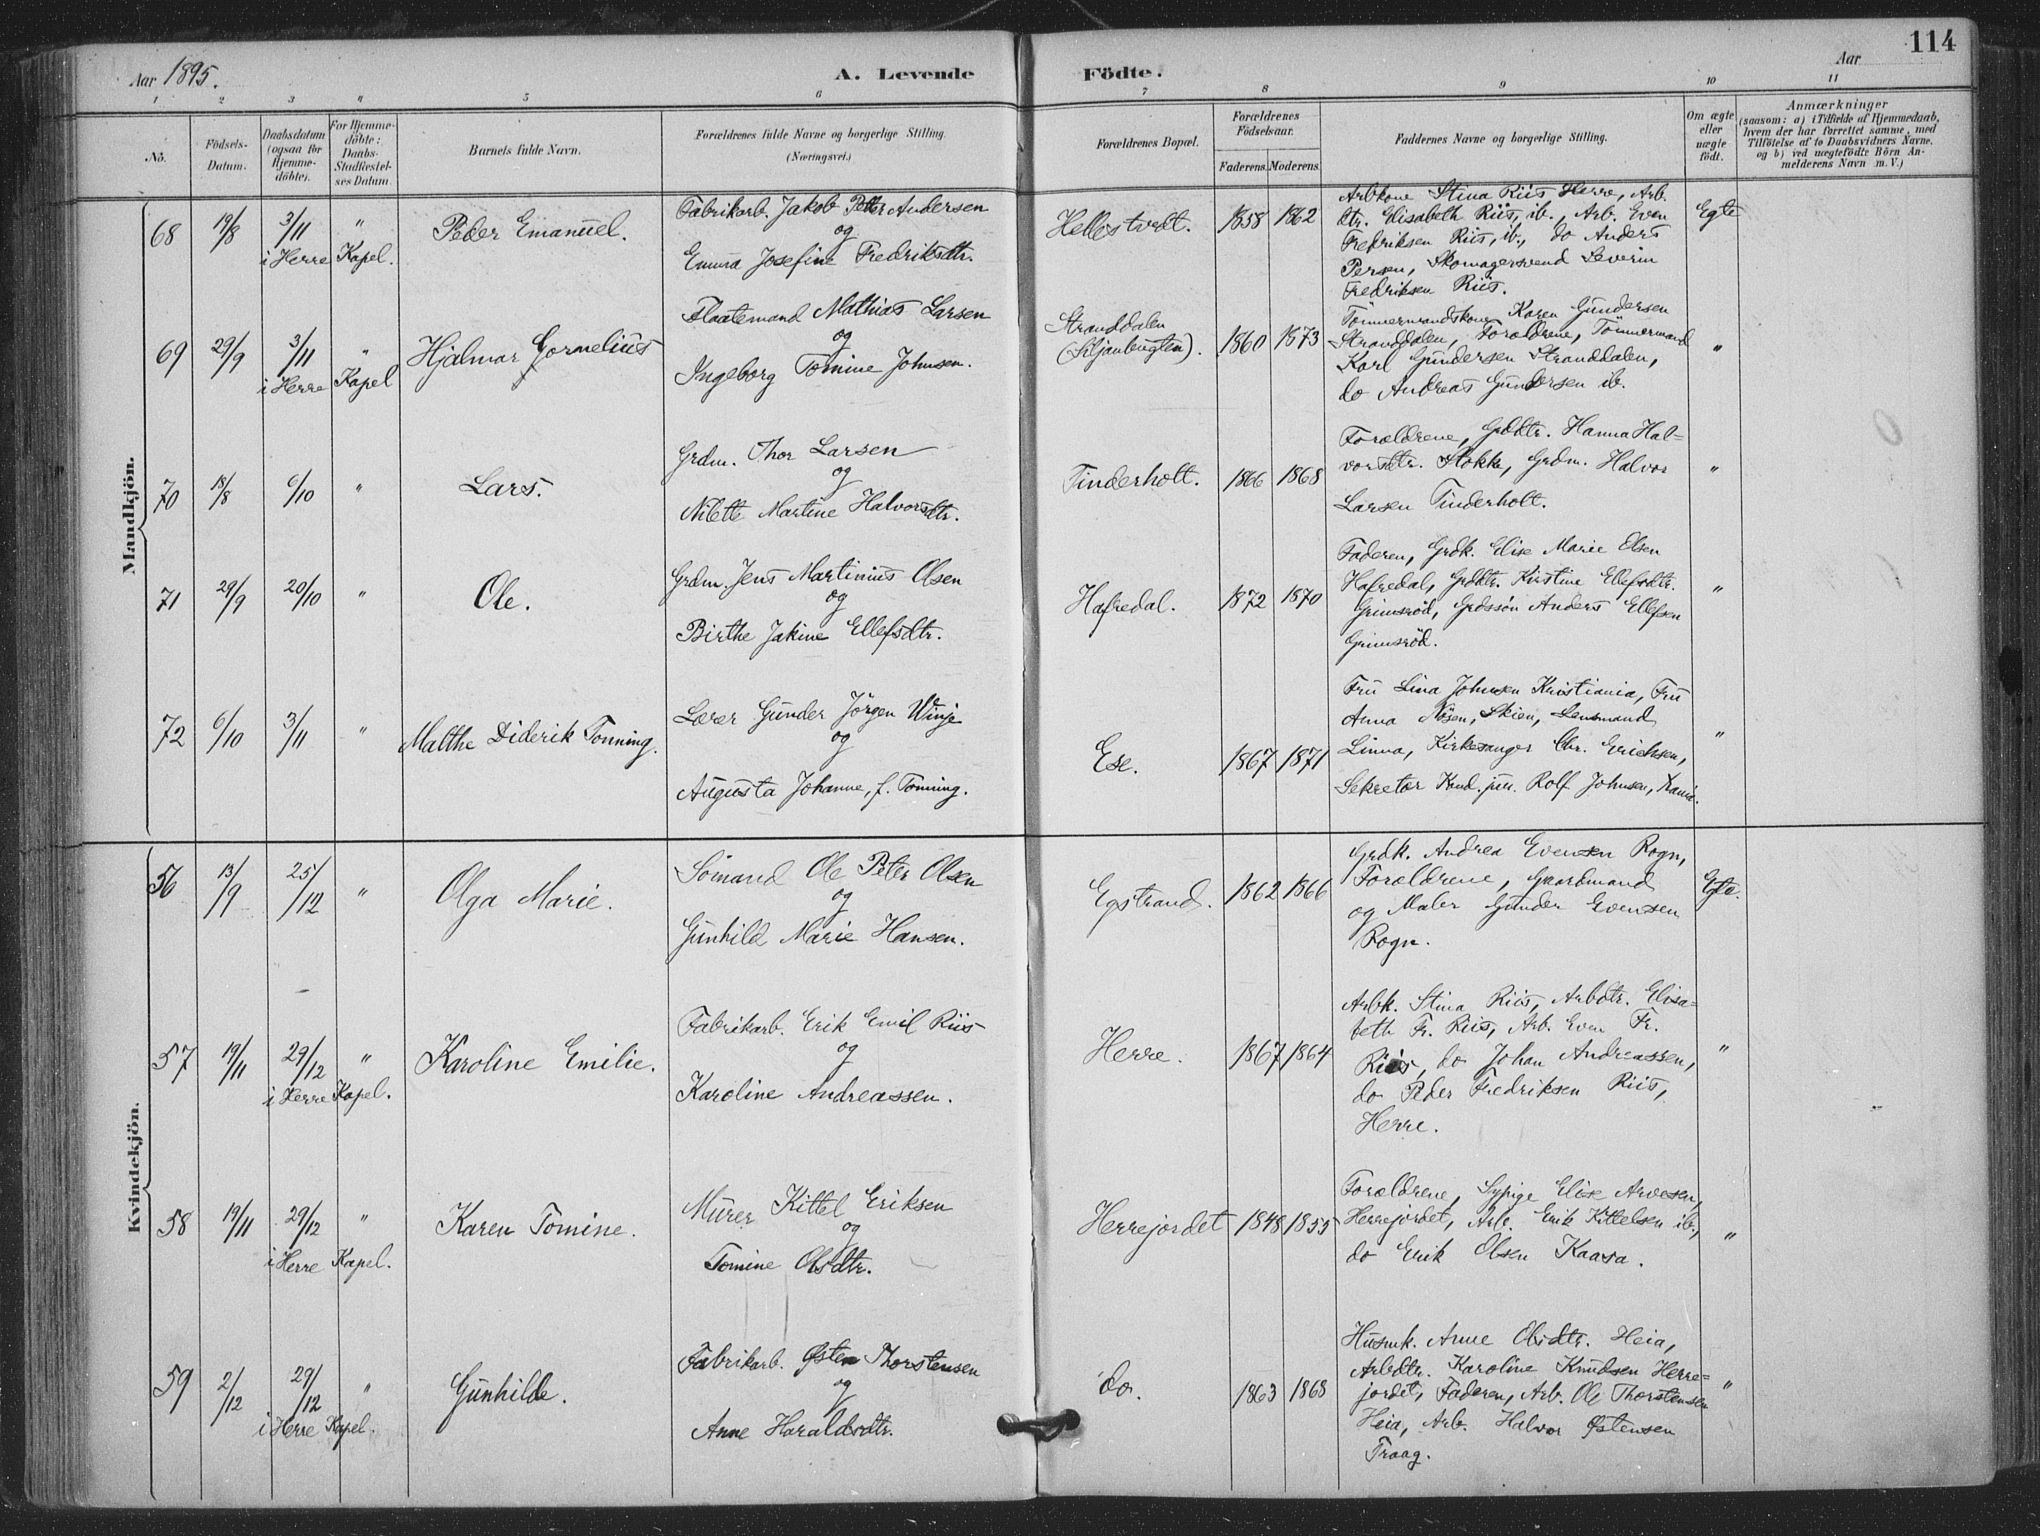 114
Aar 1895.
A. Levende Födte.
Aar
1 2 3 " 5 6 7 8 9 10 11
No.
Födsels-
Datum.
Daabsdatum
(ogsaa for
Hjemme-
döbte).
For Hjemme-
döbte:
Daabs-
Stadfæstel-
ses Datum.
Barnets fulde Navn.
Forældrenes fulde Navne og borgerlige Stilling.
(Næringsvei.)
Forældrenes Bopæl.
Forældrenes
Födselsaar.
Faderens. Moderens.
Faddernes Navne og borgerlige Stilling.
Om ægte
eller
uægte
födt.
Anmærkninger
(saasom: a) i Tilfælde af Hjemmedaab,
hvem der har forrettet samme, med
Tilföielse af to Daabsvidners Navne,
og b) ved uægtefödte Börn An-
melderens Navn m. V.)
Mandkjön.
68 19/8 3/11 "
i Herre Kapel.
Peder Emanuel.
Fabrikarb. Jakob Petter Andersen
og
Emma Josefine Fredriksdtr.
Hellestvedt. 1858 1862
Arbkone Stina Riis Herre, Arb.
dtr. Elisabeth Riis, ib., Arb. Even
Fredriksen Riis, ib., do Anders
Persen, Skomagersvend Severin
Fredriksen Riis.
Egte
69 29/9 3/11 "
i Herre Kapel
Hjalmar Cornelius
Flaatemand Mathias Larsen
og
Ingeborg Tomine Johnsen.
Stranddalen
(Siljanbugten). 1860 1873
Tömmermandskone Karen Gundersen
Stranddalen, Forældrene, Tömmermand
Karl Gundersen Stranddalen,
do Andreas Gundersen ib.
"
70 18/8 6/10 "
Lars.
Grdm. Thor Larsen
og
Nilette Martine Halvorsdtr.
Tinderholt. 1866 1868
Forældrene, Grddtr. Hanna Hal-
vorsdtr. Stokke, Grdm. Halvor
Larsen Tinderholt.
"
71 29/9 20/10 "
Ole.
Grdm. Jens Martinius Olsen
og
Birthe Jakine Ellefsdtr.
Hafredal. 1872 1870
Faderen, Grdk. Elise Marie Olsen
Hafredal, Grddtr. Kirstine Ellefsdtr.
Grimsröd, Grdssön Anders Ellefsen
Grimsröd.
"
72 6/10 3/11 "
Malthe Diderik Tonning.
Lærer Gunder Jörgen Winje
og
Augusta Johanne, f. Tonning.
Ese. 1867 1871
Fru Lina Johnsen Kristiania, Fru
Anna Skien, Lensmand
Linna, Kirkesanger Chr. Erichsen,
Sekretær Kand. jur. Rolf Johnsen, Krania.
"
Kvindekjön.
56 13/9 25/12 "
Olga Marie.
Sömand Ole Peter Olsen
og
Gunhild Marie Hansen.
Egstrand. 1862 1866
Grdk. Andrea Evensen Rogn,
Forældrene, Gaardmand
og Maler Gunder Evensen
Rogn.
Egte.
57 19/11 29/12 "
i Herre Kapel.
Karoline Emilie.
Fabrikarb. Erik Emil Riis
og
Karoline Andreassen.
Herre. 1867 1864
Arbk. Stina Riis, Arbdtr. Elisa-
beth Fr. Riis, Arb. Even Fr.
Riis, do Johan Andreassen,
do Peder Fredriksen Riis,
Herre.
"
58 19/11 29/12 "
i Herre Kapel.
Karen Tomine.
Murer Kittel Eriksen
og
Tomine Olsdtr.
Herrejordet 1848 1855
Forældrene, Sypige Elise Arvesen,
Herrejordet, Arb. Erik Kittelsen ib.,
do Erik Olsen Kaasa.
"
59 2/12 29/12 "
i Herre Kapel.
Gunhilde.
Fabrikarb. Østen Thorstensen
og
Anne Haraldsdtr.
do. 1863 1868
Husmk. Anne Olsdtr. Heia,
Arbdtr. Karoline Knudsen Herre-
jordet, Faderen, Arb. Ole Thorstensen
Heia, Arb. Halvor Østensen
Traag.
"